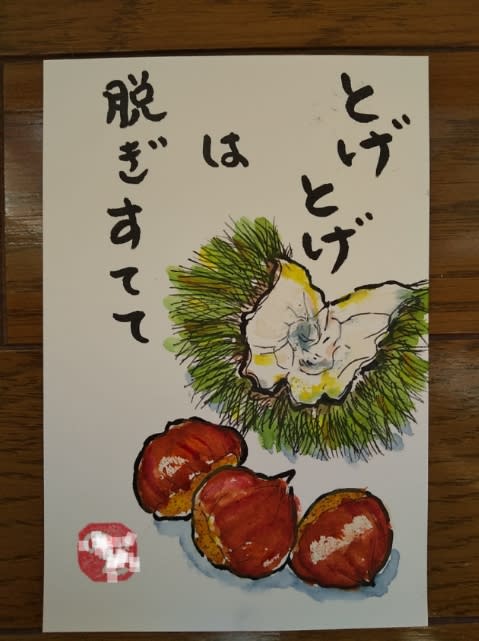 とげ
とげ
は
脱ぎすてて